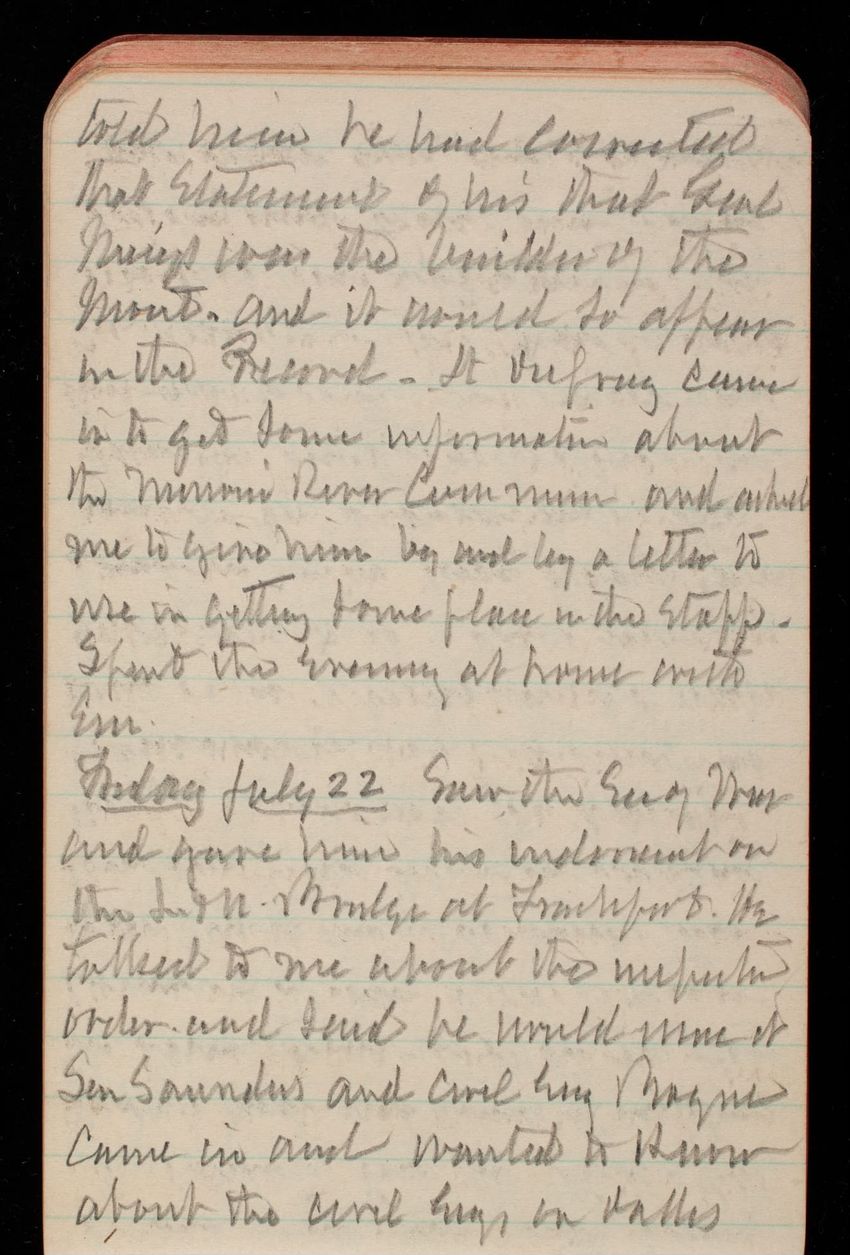 told him he had corrected
that statement of his that Genl
Meigs was the builder of the
Mont. and it would so appear
in the Record - Lt Dufray came
in to get some information about
the Missouri River Commission and asked
me to give him by and by a letter to
use in getting some place in the Staff.
Spent the Evening at home with
Em.
Friday July 22 Saw the Sec of War
and gave him his indorsement on
the L & N. Bridge at Frankfort. He
talked to me about the inspection
order. and said he would issue it
Sen Saunders and Civil Eng Bogue
came in and wanted to know
about the civil Engs on Dalles